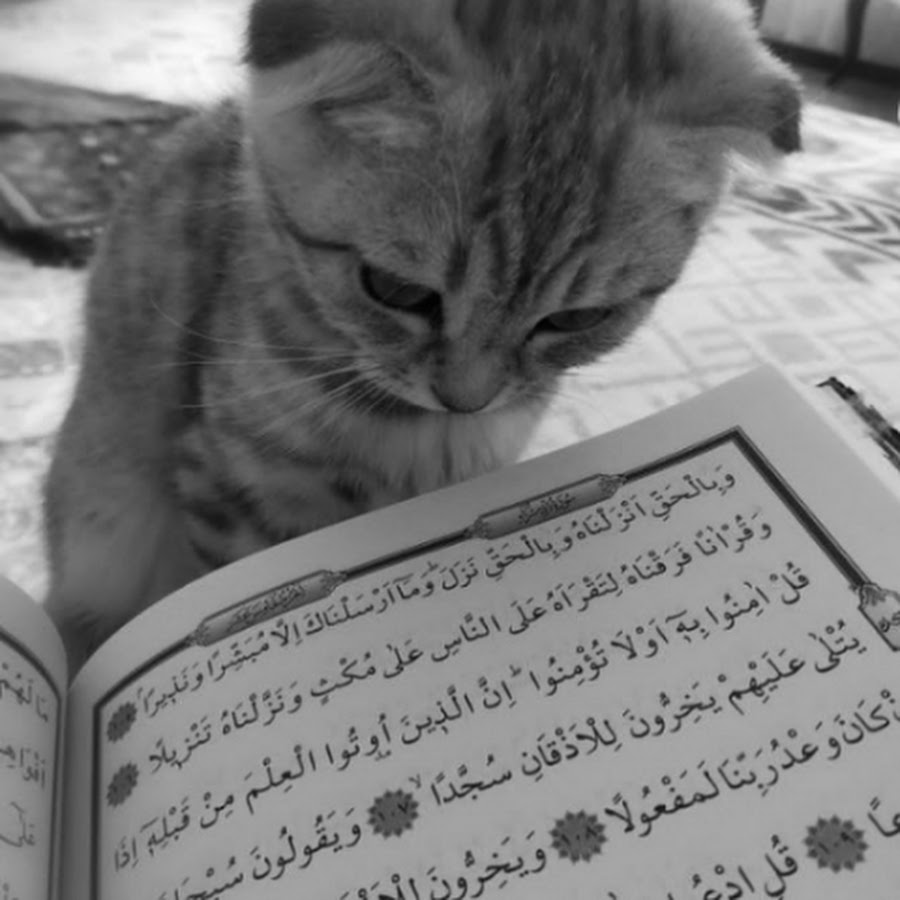 وَبِالْحَقِّ اَنْزَلْنَاهُ وَبِالْحَقِّ نَزَلَۜ وَمَٓا اَرْسَلْنَاكَ اِلَّا مُبَشِّرًا وَنَذ۪يرًاۢ
وَقُرْاٰنًا فَرَقْنَاهُ لِتَقْرَاَهُ عَلَى النَّاسِ عَلٰى مُكْثٍ وَنَزَّلْنَاهُ تَنْز۪يلًا
قُلْ اٰمِنُوا بِه۪ٓ اَوْ لَا تُؤْمِنُواۜ اِنَّ الَّذ۪ينَ اُو۫تُوا الْعِلْمَ مِنْ قَبْلِه۪ٓ اِذَا
يُتْلٰى عَلَيْهِمْ يَخِرُّونَ لِلْاَذْقَانِ سُجَّدًاۙ ١٠٧ وَيَقُولُونَ سُبْحَانَ
كَانَ وَعْدُ رَبِّنَا لَمَفْعُولًا ١٠٨ وَيَخِرُّونَ لِلْاَذْقَانِ
١٠٩ قُلِ ادْعُوا